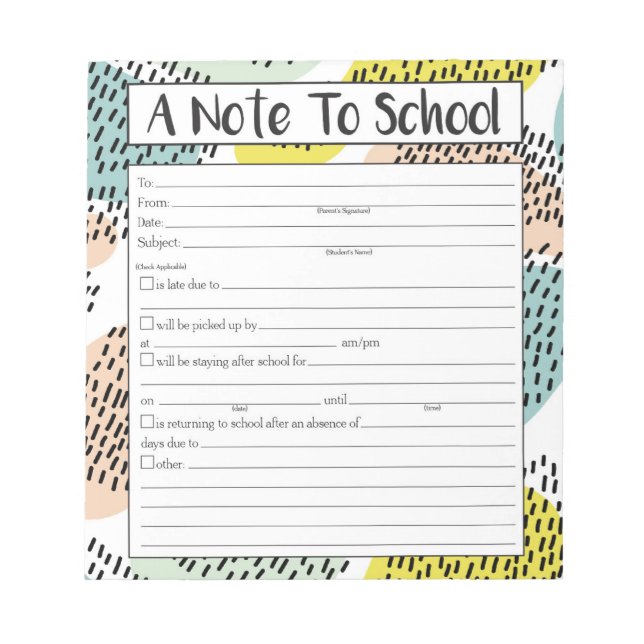 A Note To School
To:
From:
(Parent's Signature)
Date:
Subject:
(Student's Name)
(Check Applicable)
is late due to
will be picked up by
at am/pm
will be staying after school for
on until
(date) (time)
is returning to school after an absence of
days due to
other: